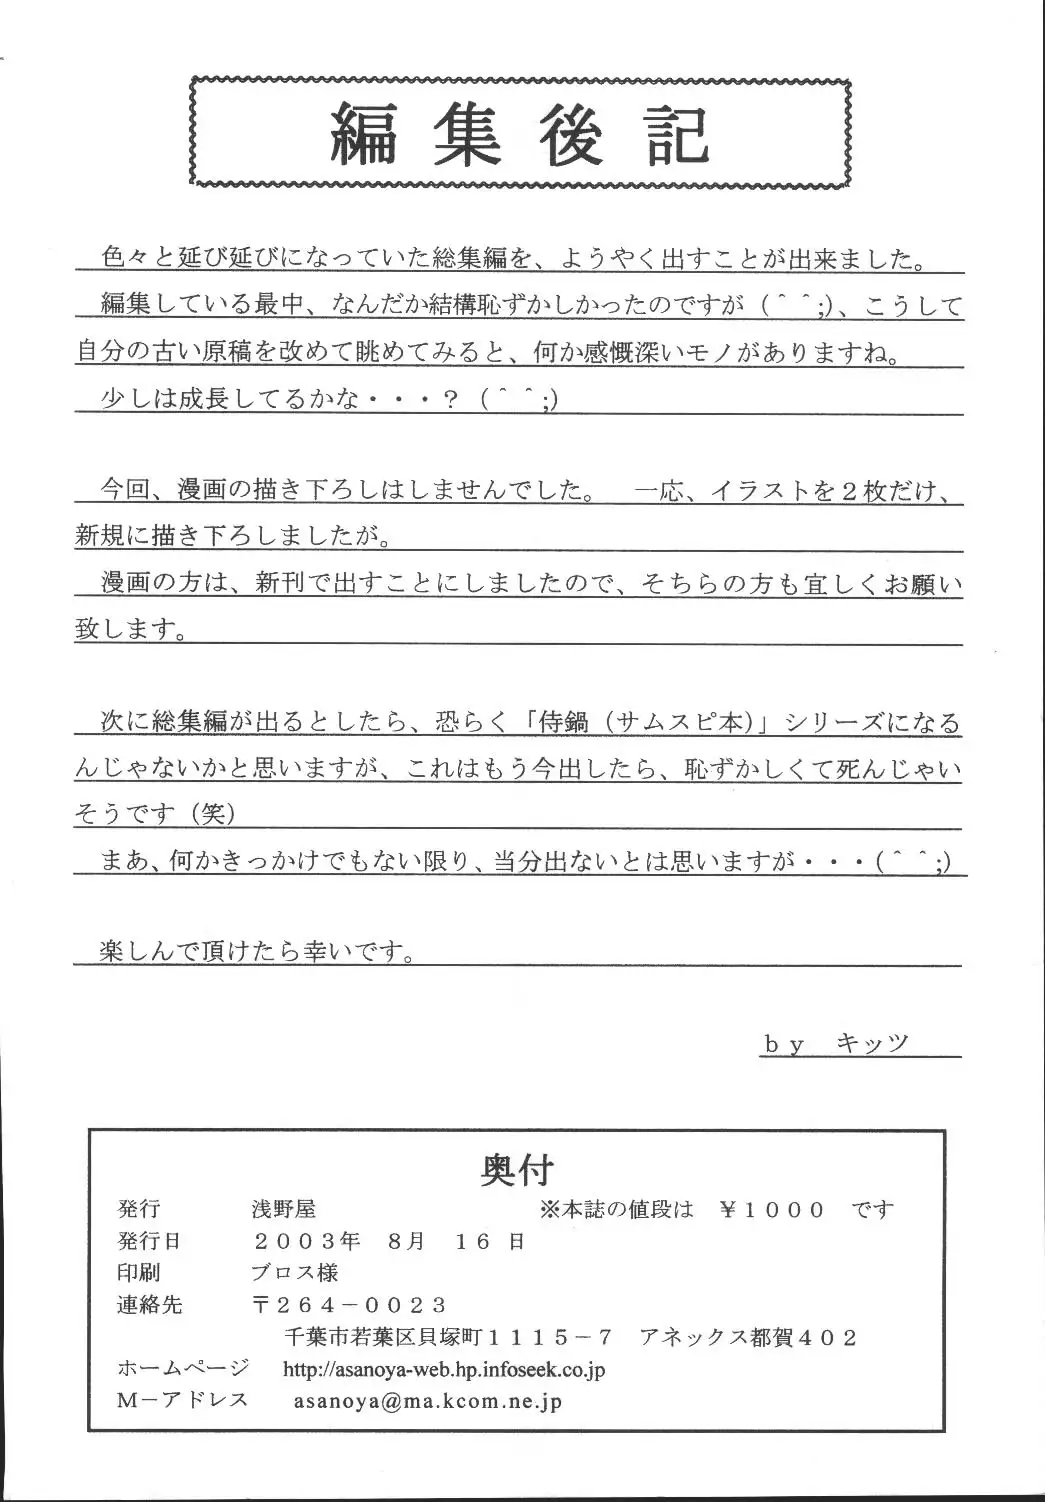 編集後記
色々と延び延びになっていた総集編を、ようやく出すことが出来ました。
編集している最中、なんだか結構恥ずかしかったのですが（＾＾;）、こうして
自分の古い原稿を改めて眺めてみると、何か感慨深いモノがありますね。
少しは成長してるかな・・・？（＾＾;）
今回、漫画の描き下ろしはしませんでした。　一応、イラストを２枚だけ、
新規に描き下ろしましたが。
漫画の方は、新刊で出すことにしましたので、そちらの方も宜しくお願い
致します。
次に総集編が出るとしたら、恐らく「侍鍋（サムスピ本）」シリーズになる
んじゃないかと思いますが、これはもう今出したら、恥ずかしくて死んじゃい
そうです（笑）
まあ、何かきっかけでもない限り、当分出ないとは思いますが・・・(＾＾;)
楽しんで頂けたら幸いです。
ｂｙ　キッツ
奥付
発行　浅野屋　※本誌の値段は　￥１０００　です
発行日　２００３年　８月　１６日
印刷　ブロス様
連絡先　〒２６４－００２３
千葉市若葉区貝塚町１１１５－７　アネックス都賀４０２
ホームページ　http://asanoya-web.hp.infoseek.co.jp
Ｍ－アドレス　asanoya@ma.kcom.ne.jp